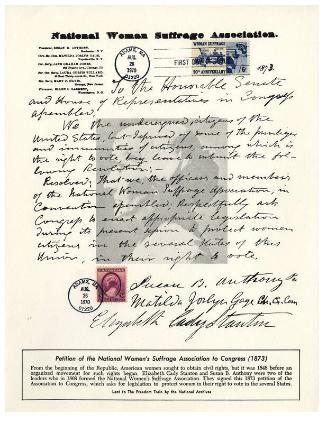 National Woman Suffrage Association.
President, SUSAN B. ANTHONY,
Rochester, N.Y.
ADAMS, MA
AUG
26
1970
01220
FIRST DAY OF
WOMAN SUFFRAGE
50TH ANNIVERSARY
6¢
1873.
To the Honorable Senate
and House of Representatives in Congress
assembled.
We the undersigned, citizens of the
United States, but deprived of some of the privileges
and immunities of citizens, among which is
the right to vote, beg leave to submit the fol-
lowing Resolution:
Resolved; That we, the officers and members
of the National Woman Suffrage Association, in
Convention assembled, Respectfully ask
Congress to enact appropriate legislation
during its present session to protect women
citizens in the several States of this
Union, in their right to vote.
ADAMS, MA
AUG
26
1970
01220
Susan B. Anthony
Matilda Joslyn Gage Ch. Ex. Com
Elizabeth Cady Stanton
Petition of the National Women's Suffrage Association to Congress (1873)
From the beginning of the Republic, American women sought to obtain civil rights, but it was 1848 before an
organized movement for such rights began. Elizabeth Cady Stanton and Susan B. Anthony were two of the
leaders who in 1869 formed the National Women's Suffrage Association. They signed this 1873 petition of the
Association to Congress, which asks for legislation to protect women in their right to vote in the several States.
Lent to The Freedom Train by the National Archives